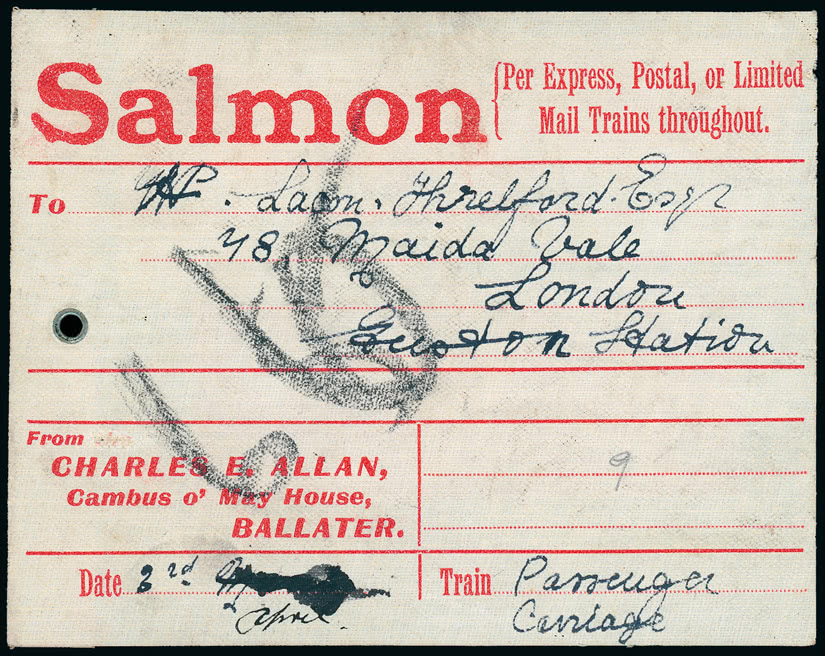 Salmon
Per Express, Postal, or Limited
Mail Trains throughout.
To Lacon. Threlford. Esqr
78, Maida Vale
London
Euston Station
From
CHARLES E. ALLAN,
Cambus o' May House,
BALLATER.
9
Date 3rd
April.
Train Passenger
Carriage